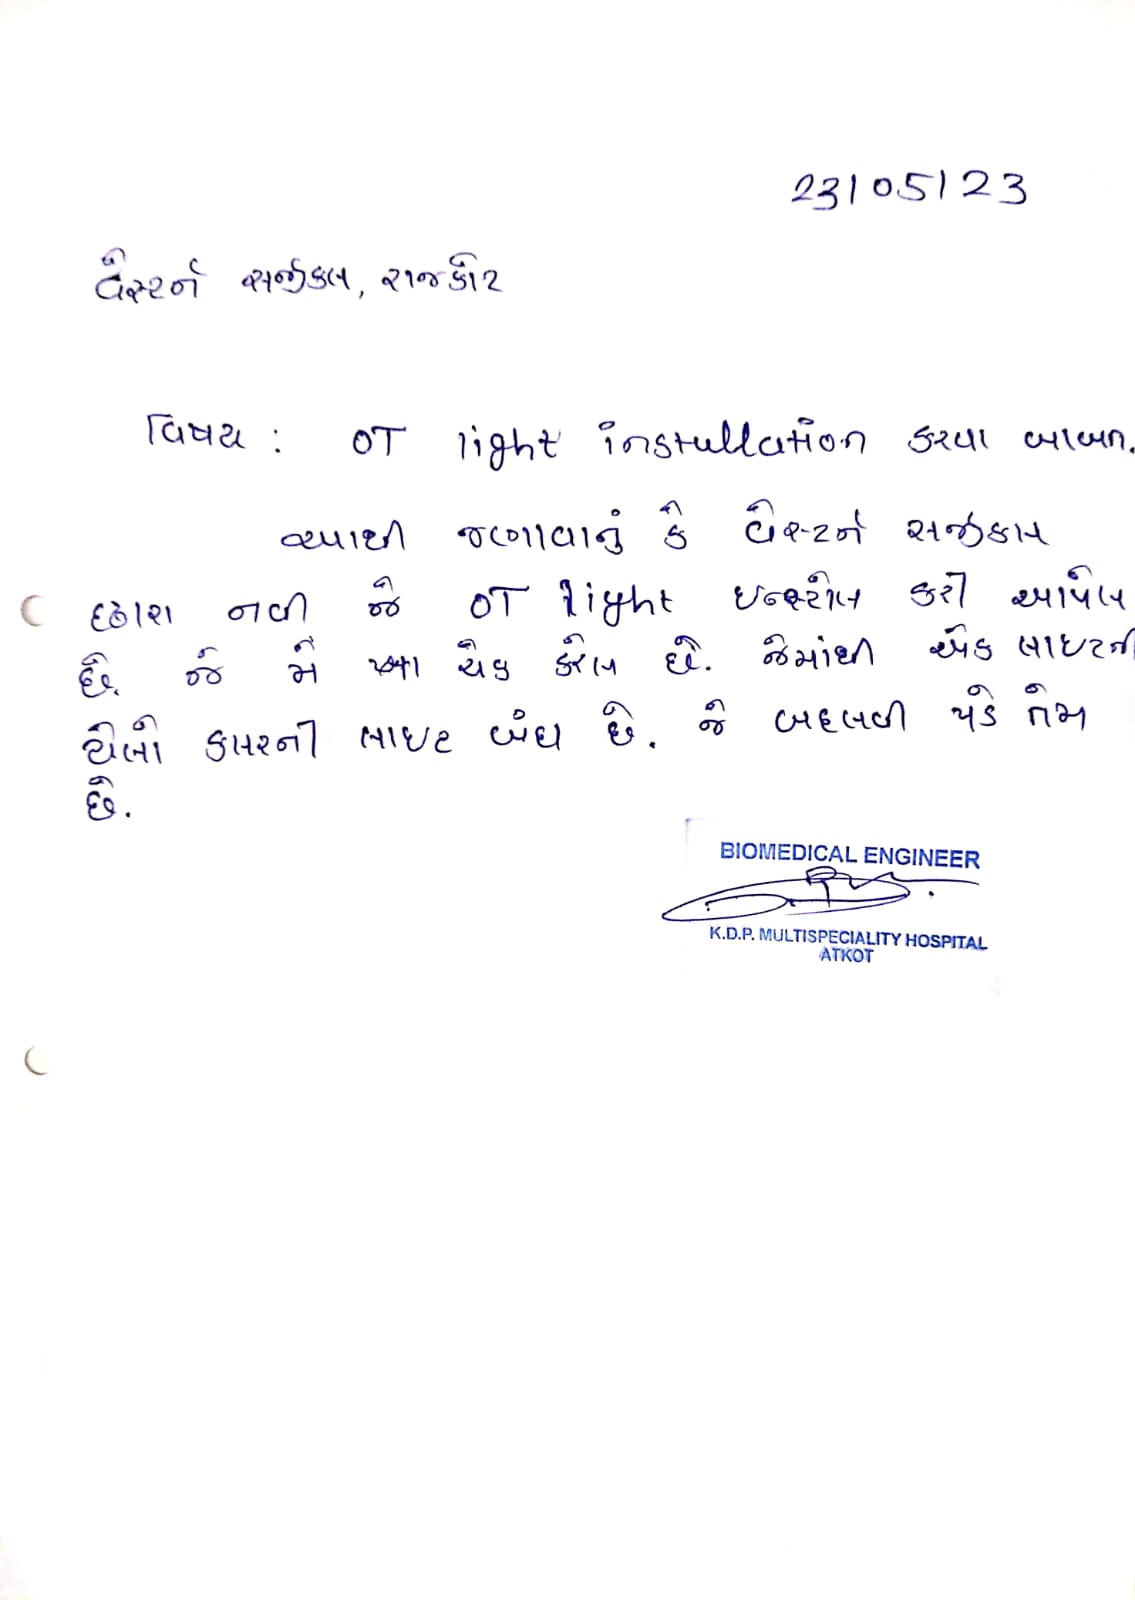 23/05/23
વેસ્ટર્ન સર્જીકલ, રાજકોટ
વિષય : OT light instullation કરવા બાબત.
આથી જણાવાનું કે વેસ્ટર્ન સર્જીકલ
દ્વારા નવી જે OT light ઇન્સ્ટોલ કરી આપેલ
છે. જે મેં આ ચેક કરેલ છે. જેમાંથી એક લાઇટની
યેલો કલરની લાઇટ બંધ છે. જે બદલવી પડે તેમ
છે.
BIOMEDICAL ENGINEER
K.D.P. MULTISPECIALITY HOSPITAL
ATKOT